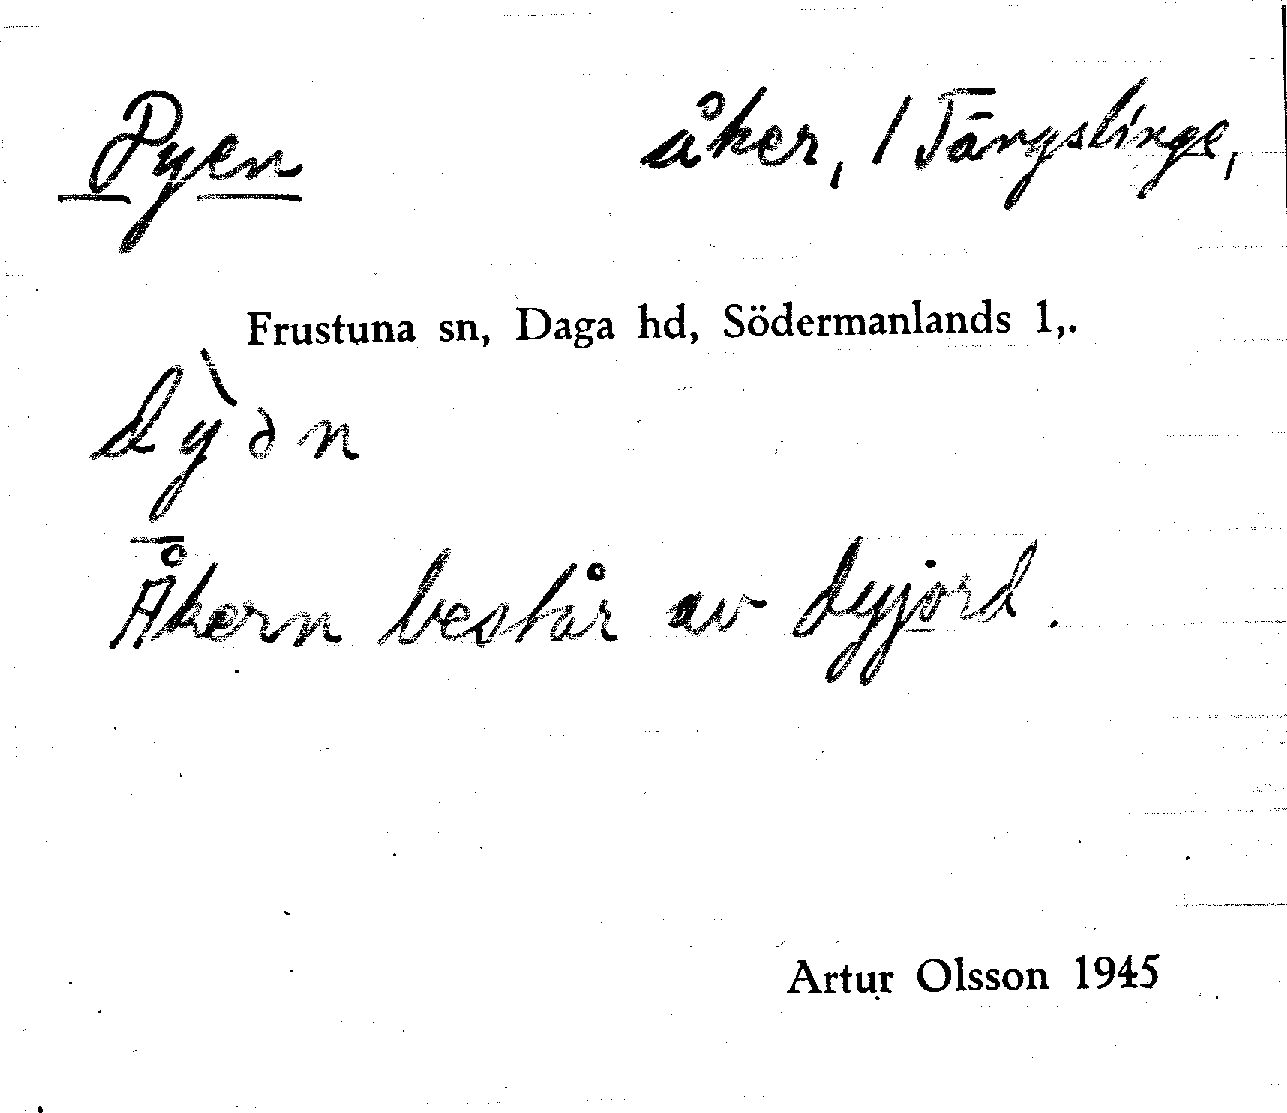 Dyen åker, 1 Tängslinge,
Frustuna sn, Daga hd, Södermanlands l,.
dỳən
Åkern består av dyjord.
Artur Olsson 1945